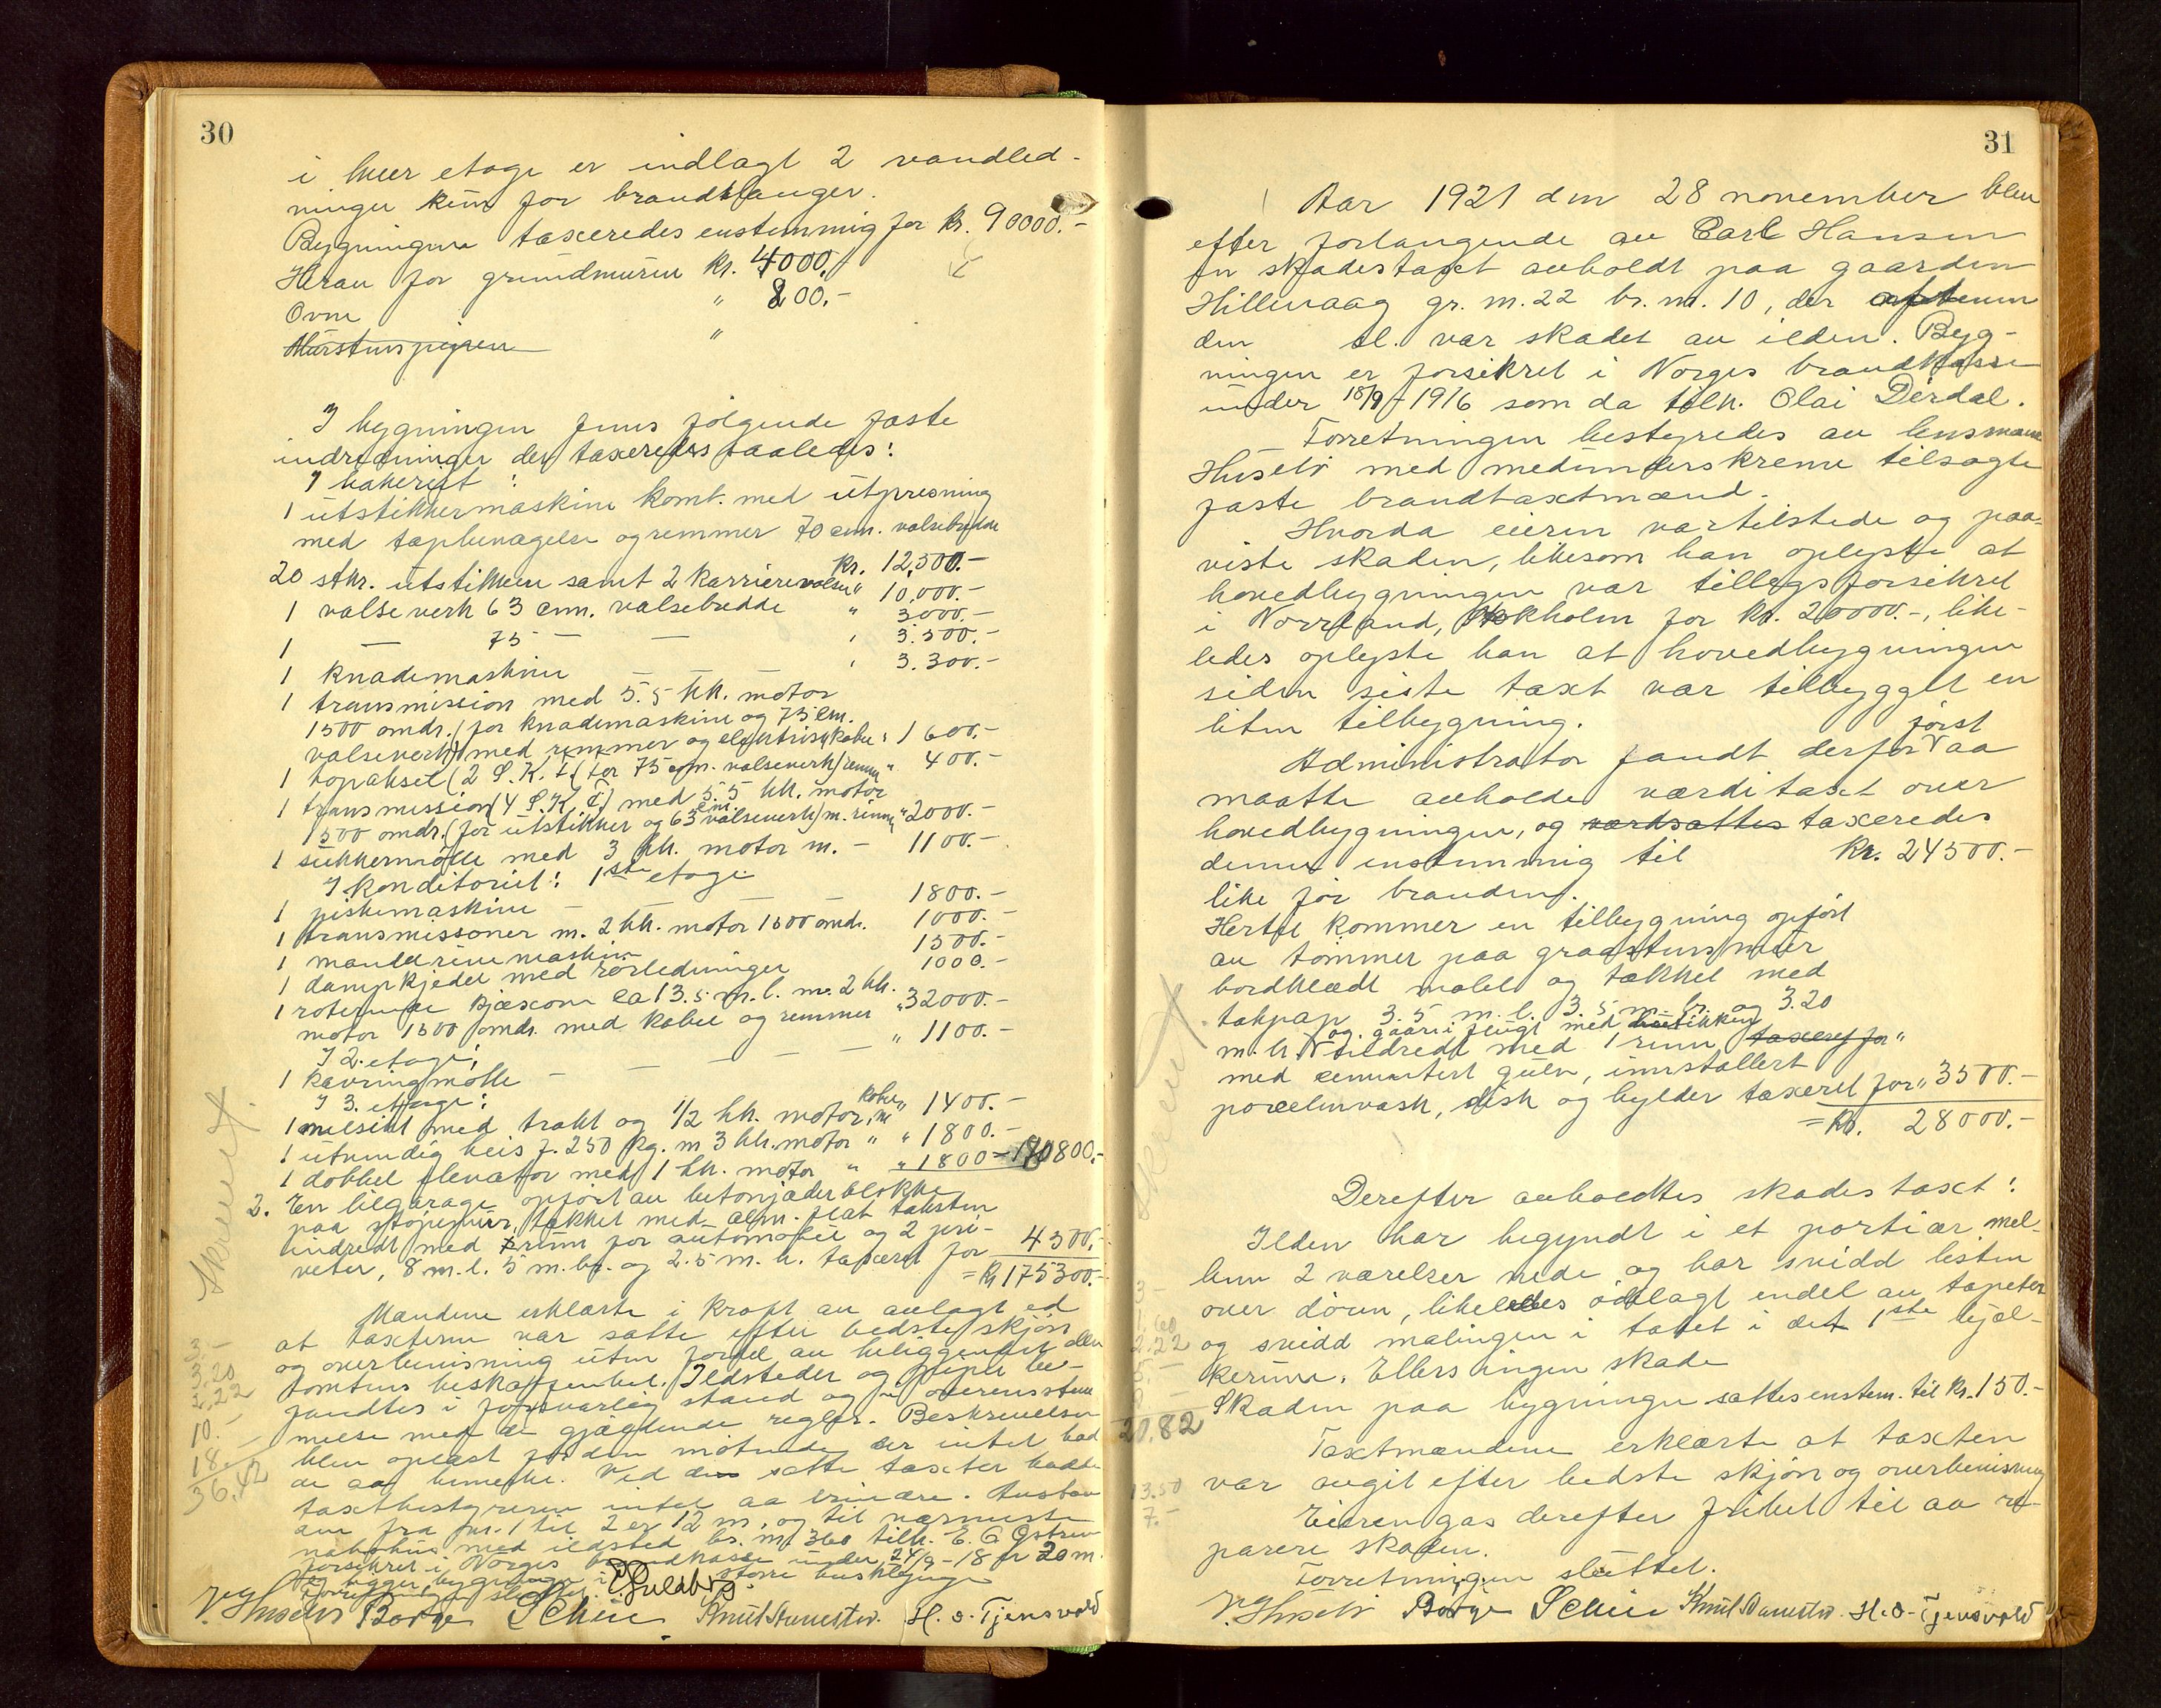 30
i hver etage er indlagt 2 vandled-
ninger kun for brandslanger.
Bygningen taxeredes enstemmig for kr. 90000.-
Herav for grundmuren kr. 4000.-
Ovne " 800.-
Murstenspipen "
I bygningen fins følgende faste
indretninger der taxeredes saaledes:
I bakeriet:
1 utstikkermaskine komb. med utpresning
med tapbevægelse og remmer 70 cm. valsebredde
kr. 12,500.-
20 stkr. utstikkere samt 2 karrierevalser " 10,000.-
1 valseverk 63 cm. valsebredde " 3000.-
1 — 75 — — " 3.500.-
1 knademaskine — — " 3.300.-
1 transmission med 5.5 hk. motor
1500 omdr. (for knademaskine og 75 cm.
valseverk) med remmer og elektrisk kabel " 1600.-
1 topaksel (2 S.K.F. for 75 cm. valseverk) remmer " 400.-
1 transmission (4 S.K.F.) med 5.5 hk. motor
1500 omdr. (for utstikker og 63 cm. valseverk) m. remmer " 2000.-
1 sukkermølle med 3 hk. motor m. — 1100.-
I konditoriet: 1ste etage
1 piskemaskine — — — 1800.-
1 transmissoner m. 2 hk. motor 1500 omdr. 1000.-
1 mandelrivemaskin 1500.-
1 dampkjedel med rørledninger 1000.-
1 roterende kjæxovn ca 13.5 m. l. m. 2 hk.
motor 1500 omdr. med kabel og remmer " 32000.-
I 2. etage:
1 kavringmølle — — — — " 1100.-
I 3. etage:
1 melsikt med trakt og 1/2 hk. motor, m kabel " 1400.-
1 utvendig heis f. 250 kg. m 3 hk. motor " " 1800.-
1 dobbel elevator med 1 hk. motor " " 1800.- 170800.-
2. En bilgarage opført av betonjæderblokke
paa støpemur, tækket med alm. flat taksten
indredt med 1 rum for automobil og 2 pri-
veter, 8 m. l. 5 m. br. og 2.5 m. h. taxert for 4500.-
= kr 175300.-
Mændene erklærte i kraft av avlagt ed
at taxterne var satte efter bedste skjøn
og overbevisning uten fordel av beliggenhet eller
tomtens beskaffenhet. Ildsteder og piper be-
fandtes i forsvarlig stand og i overensstem
melse med de gjældende regler. Beskrivelsen
blev oplæst for den møtende der intet had
de aa bemerke. Ved de satte taxter hadde
taxtbestyreren intet aa erindre. Avstan
den fra nr. 1 til 2 er 12 m, og til nærmeste
nabohus med ildsted br. nr. 360 tilh. E. G. Østrem
forsikret i Norges brandkasse under 24/9-18 er 20 m.
og ligger bygningen i større husklynge
Forretningen sluttet. E Guldberg.
J Husebø Børge Scheie Knut Aunestad. H. O. Tjensvold
Skrevet.
3.-
3.20
2,22
10.-
18.-
36.42
31
Aar 1921 den 28 november blev
efter forlangende av Carl Hansen
en skadestaxt avholdt paa gaarden
Hillevaag gr. nr. 22 br. nr. 10, der aftenen
den sl. var skadet av ilden. Byg-
ningen er forsikret i Norges brandkasse
under 18/9-1916 som da tilh. Olai Dirdal.
Forretningen bestyredes av lensmann
Husebø med medunderskrevne tilsagte
faste brandtaxtmænd.
Hvorda eieren var tilstede og paa-
viste skaden, likesom han oplyste at
hovedbygningen var tillægsforsikret
i Norrland, Stokholm for kr. 20000.-, like-
ledes oplyste han at hovedbygningen
siden siste taxt var tilbygget en
liten tilbygning.
Administrator fandt derfor først aa
maatte avholde værditaxt over
hovedbygningen, og værdsattes taxeredes
denne enstemmig til kr. 24500.-
like før branden.
Hertil kommer en tilbygning opført
av tømmer paa graastensmur
bordklædt malet og tækket med
takpap 3.5 m. l. 3.5 m. br. og 3.20
m. h. og gaar i flugt med butikken
tildredt med 1 rum taxert for "
med cementert gulv, innstallert
porcelenvask, disk og hylder taxeret for " 3500.-
= kr. 28000.-
Derefter avholdtes skadestaxt:
Ilden har begyndt i et portiær mel-
lem 2 værelser nede og har svidd listen
over døren, likeledes ødelagt endel av tapeter
og svidd malingen i taket i det 1ste bjæl-
kerum. Ellers ingen skade
Skaden paa bygningen sattes enstem. til kr. 150.-
Taxtmændene erklærte at taxten
var avgit efter bedste skjøn og overbevisning
Eieren gas derefter frihet til aa re-
parere skaden.
Forretningen sluttet.
J Husebø Børge Scheie Knut Aunestad. H. O. Tjensvold
Skrevet
3-
1.60
2.22
5.-
20.82
13.50
7.-